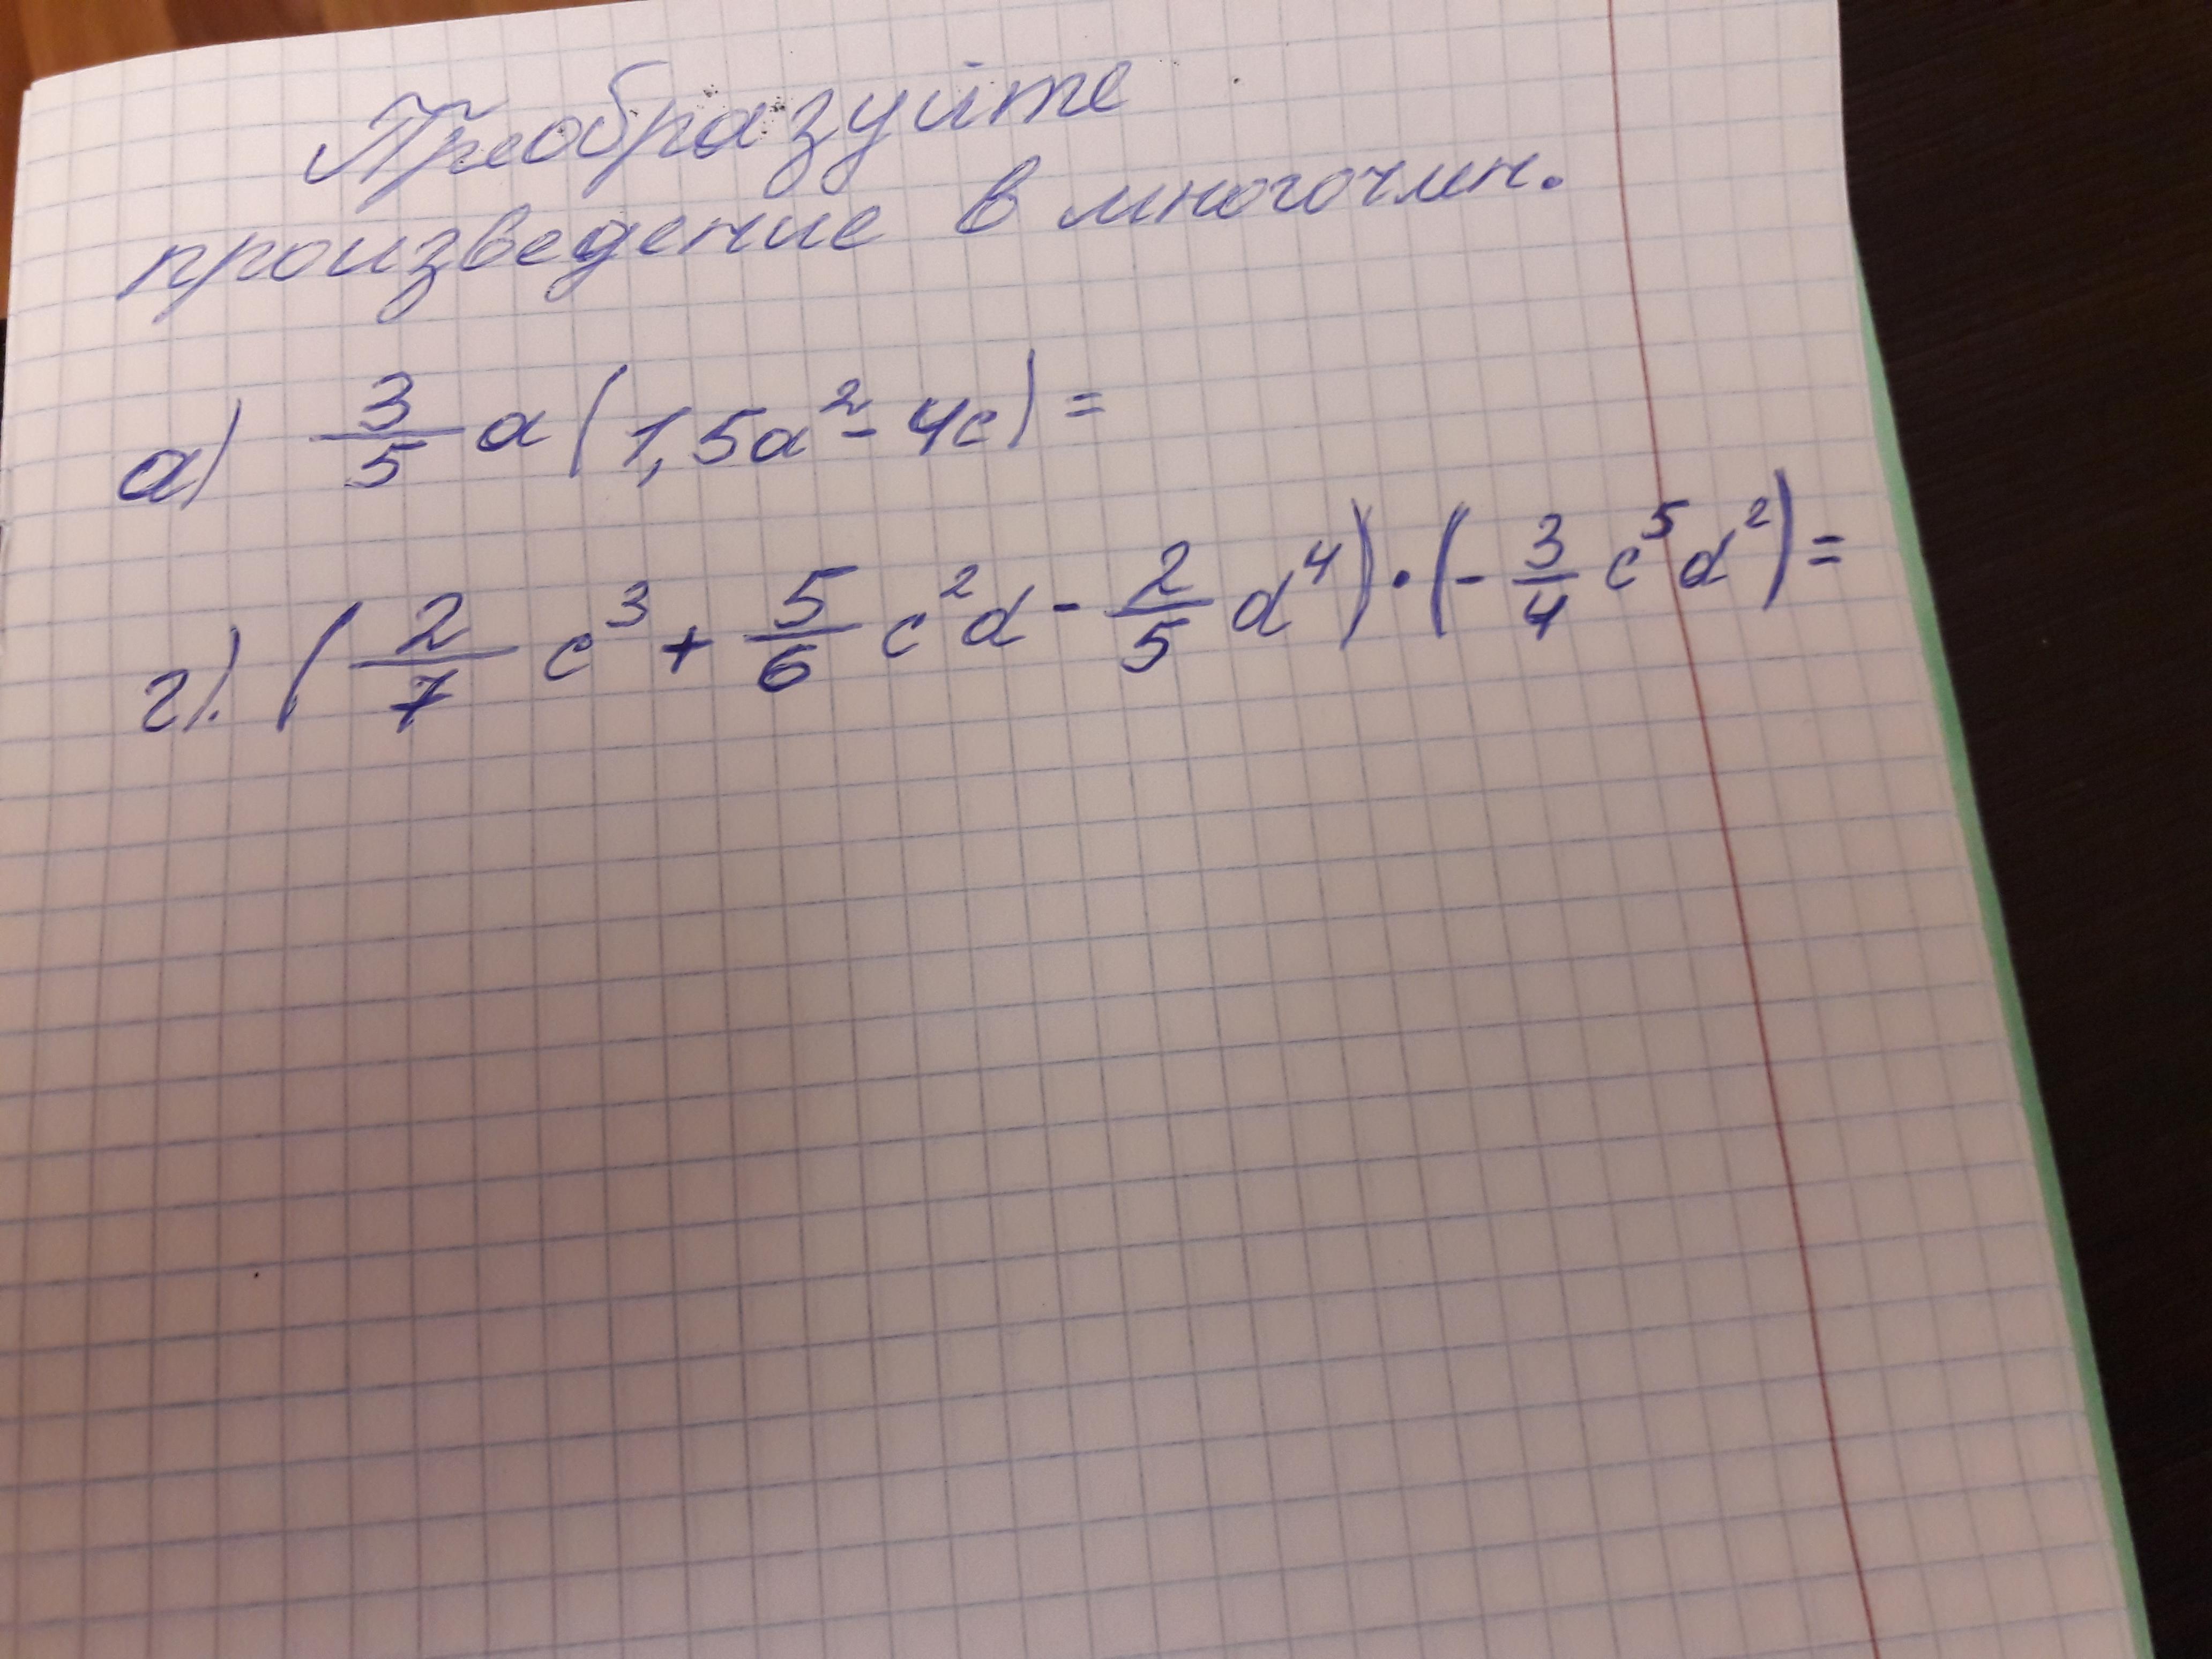 Преобразуйте
произведение в многочлен.
а) 3/5 a(1,5a² - 4c) =
г). (2/7 c³ + 5/6 c²d - 2/5 d⁴) · (- 3/4 c⁵d²) =